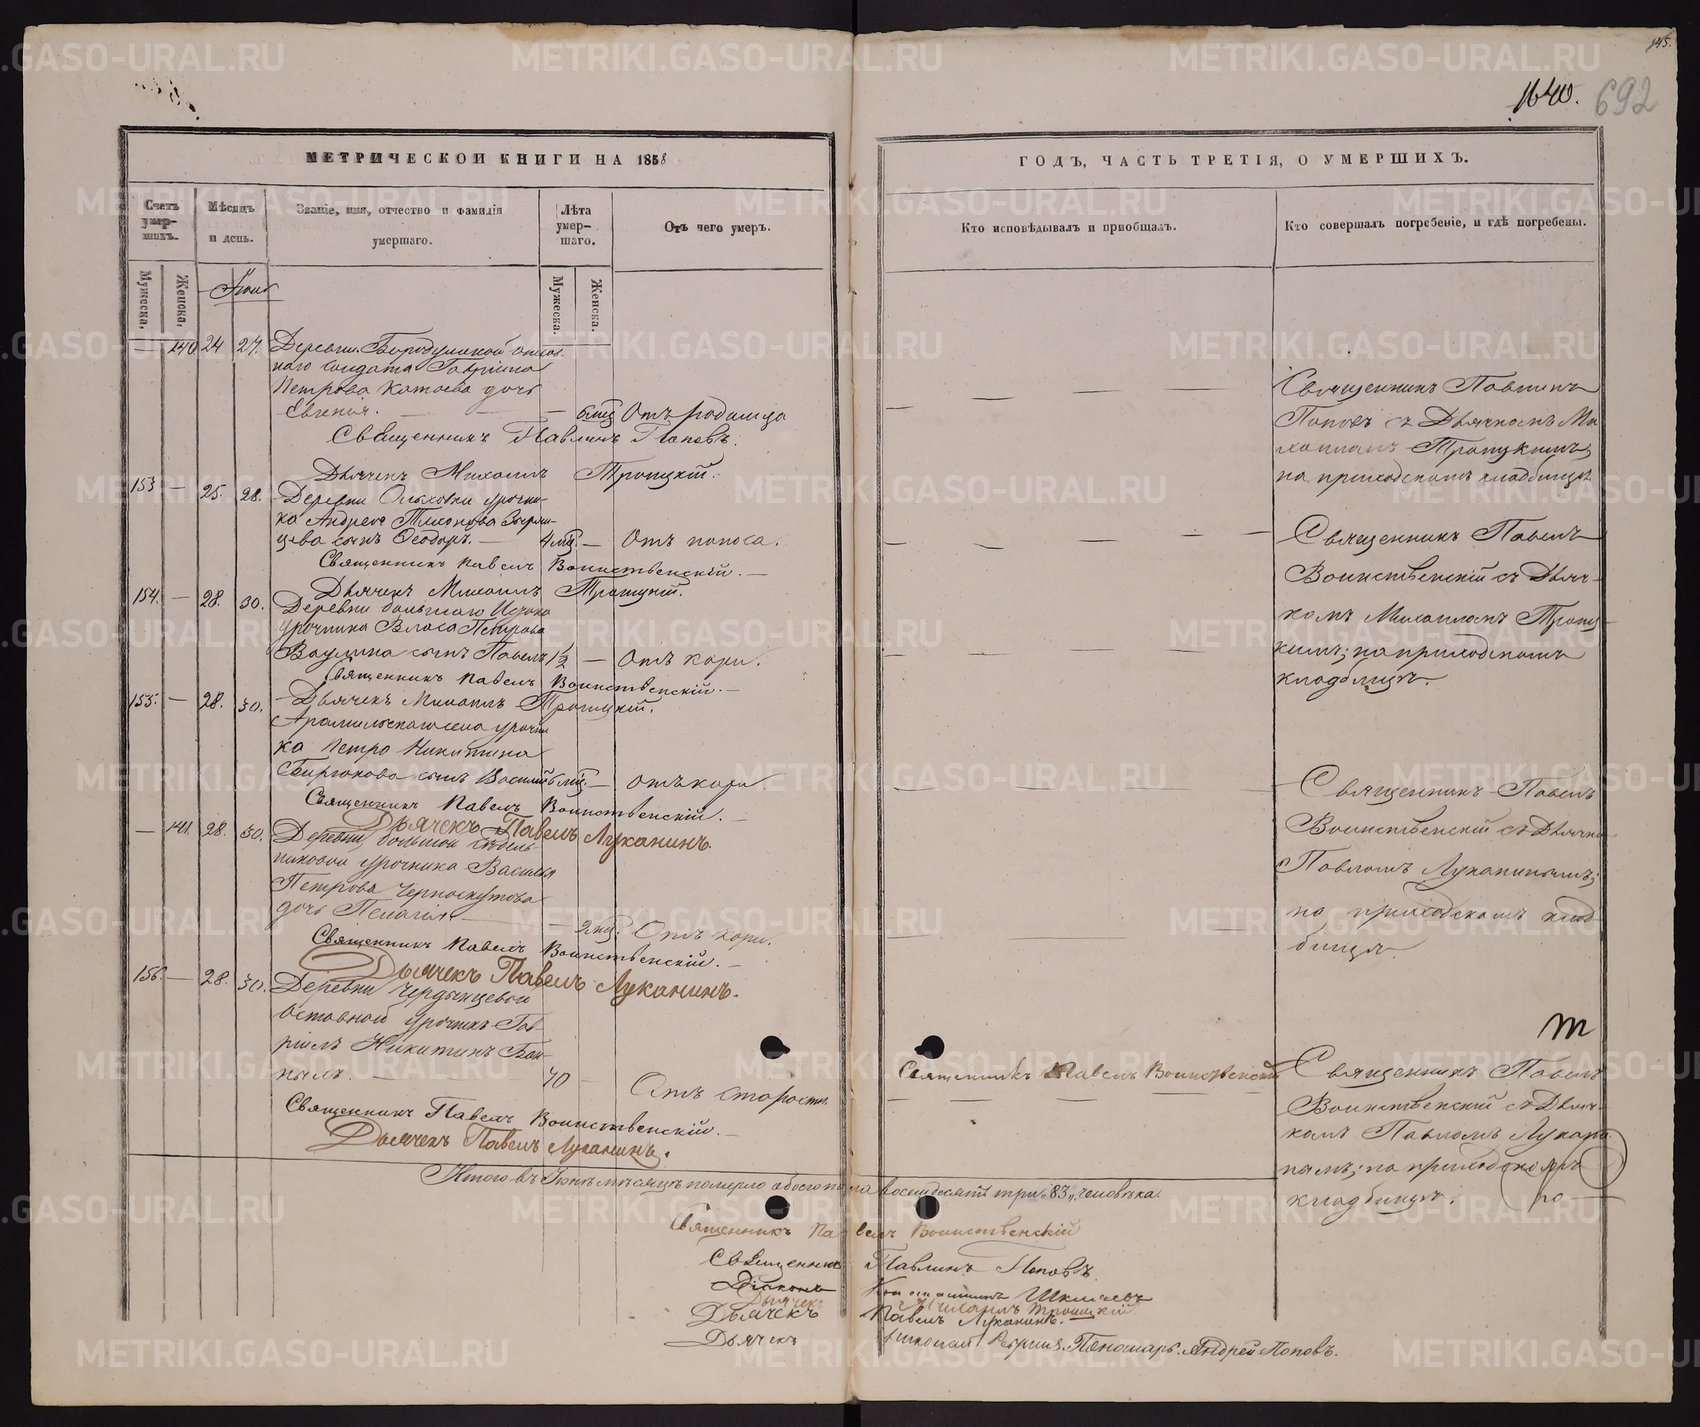 145.
1640. 692
МЕТРИЧЕСКОЙ КНИГИ НА 1858
ГОДЪ, ЧАСТЬ ТРЕТІЯ, О УМЕРШИХЪ.
Счетъ умер-шихъ.
Мѣсяцъ и день.
Званіе, имя, отчество и фамилія умершаго.
Лѣта умер-шаго.
Отъ чего умеръ.
Кто исповѣдывалъ и пріобщалъ.
Кто совершалъ погребеніе, и гдѣ погребены.
Мужеска.
Женска.
Мужеска.
Женска.
— 140 24 27. Деревни
наго солдата Гавріила
Петрова Катаева дочь
Евгенія. — — 6 мц Отъ родимца
Священникъ Павлинъ Поповъ.
Дьячекъ Михаилъ Троицкій.
Священникъ Павлинъ
Поповъ съ Дьячкомъ Ми
хаиломъ Троицкимъ;
на приходскомъ кладбищѣ
153 — 25. 28. Деревни Ольховки урочни-
ка Андрея Тихонова
сынъ Ѳеодоръ. — 4 мц. — Отъ поноса.
Священникъ Павелъ Воинственскій. —
Дьячекъ Михаилъ Троицкій.
Священникъ Павелъ
Воинственскій съ Дьяч-
комъ Михаиломъ Троиц-
кимъ; на приходскомъ
кладбищѣ.
154. — 28. 30. Деревни большаго Истока
урочника Власа Петрова
Ваулина сынъ Павелъ 1½ — Отъ кори.
Священникъ Павелъ Воинственскій. —
Дьячекъ Михаилъ Троицкій.
155. — 28. 30. Арамильскаго села урочни
ка Петра Никитина
Бирюкова сынъ Василій 6 мц. — Отъ кори.
Священникъ Павелъ Воинственскій. —
Дьячекъ Павелъ Луканинъ.
Священникъ Павелъ
Воинственскій съ Дьячко
Павломъ Луканинымъ;
на приходскомъ клад-
бищѣ.
— 141. 28. 30. Деревни большой Сѣдель
никовой урочника Василья
Петрова Черноскутова
дочь Пелагія. — — 2 мц. Отъ кори.
Священникъ Павелъ Воинственскій. —
Дьячекъ Павелъ Луканинъ.
156. — 28. 30. Деревни Чердынцевой
отставной урочникъ Гав-
ріилъ Никитинъ Бан-
ныхъ. — 70 — Отъ старости.
Священникъ Павелъ Воинственскій
Священникъ Павелъ Воинственскій. —
Дьячекъ Павелъ Луканинъ.
Священникъ Павелъ
Воинственскій съ Дьяч-
комъ Павломъ Лукани
нымъ; на приходскомъ
кладбищѣ.
Итого въ Іюнѣ мѣсяцѣ померло обоего пола восемдесятъ три „83„ человѣка.
Священникъ Павелъ Воинственскій
Священникъ Павлинъ Поповъ.
Діаконъ
Дьячекъ Михаилъ Троицкій
Дьячекъ Павелъ Луканинъ.
Дьячекъ Николай Пономарь Андрей Поповъ.
METRIKI.GASO-URAL.RU